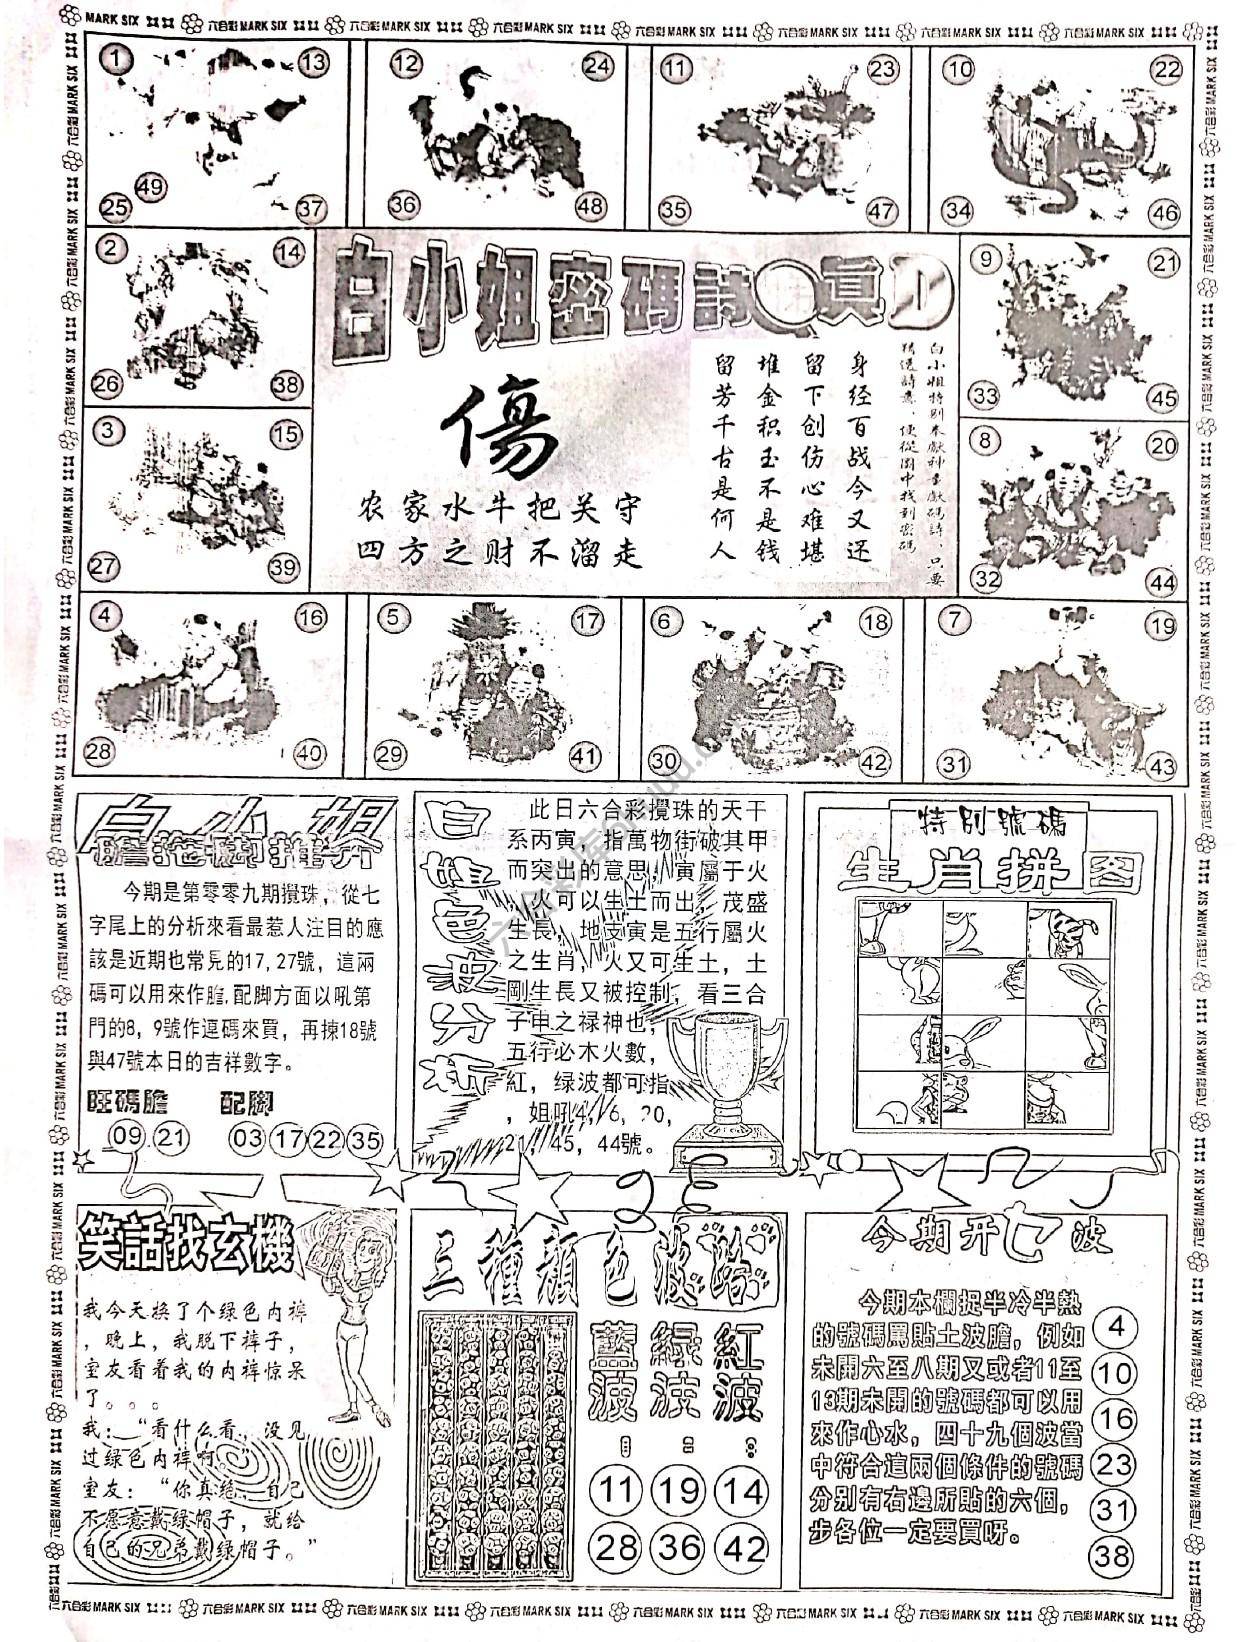 六合彩 MARK SIX
1 13 25 37 49
12 24 36 48
11 23 35 47
10 22 34 46
2 14 26 38
白小姐密碼詩
傷
农家水牛把关守
四方之财不溜走
身经百战今又还
留下创伤心难堪
堆金积玉不是钱
留芳千古是何人
9 21 33 45
3 15 27 39
8 20 32 44
4 16 28 40
5 17 29 41
6 18 30 42
7 19 31 43
白小姐
膽拖脚推算
今期是第零零九期攪珠,從七
字尾上的分析來看最惹人注目的應
該是近期也常見的17,27號，這兩
碼可以用來作膽,配脚方面以吼第
門的8，9號作連碼來買，再揀18號
與47號本日的吉祥數字。
旺碼膽 配脚
09 21 03 17 22 35
白姐色波分析
此日六合彩攪珠的天干
系丙寅，指萬物街破其甲
而突出的意思，寅屬于火
，火可以生土而出，茂盛
生長，地支寅是五行屬火
之生肖，火又可生土，土
剛生長又被控制，看三合
子申之禄神也，
五行必木火數，
紅，绿波都可指
，姐吼4，6，20，
21，45，44號。
特別號碼
生肖拼图
笑話找玄機
我今天换了个绿色内裤
，晚上，我脱下裤子，
室友看着我的内裤惊呆
了。。。
我：“看什么看，没见
过绿色内裤啊。
室友：“你真给，自己
不愿意戴绿帽子，就给
自己的兄弟戴绿帽子。”
三種顏色波路
藍波 緑波 紅波
11 19 14
28 36 42
今期开七波
今期本欄捉半冷半熱
的號碼罵貼土波膽，例如
未開六至八期又或者11至
13期未開的號碼都可以用
來作心水，四十九個波當
中符合這兩個條件的號碼
分别有右邊所貼的六個，
步各位一定要買呀。
4
10
16
23
31
38
六合彩 MARK SIX